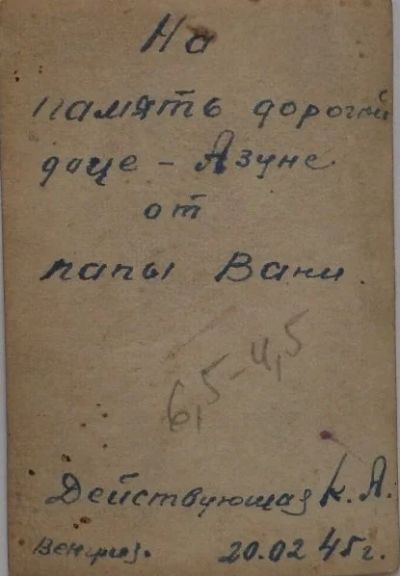 На
память дорогой
доце - Азуне
от
папы Вани.
6,5-4,5
Действующая К. А.
Венгрия. 20.02 45 г.